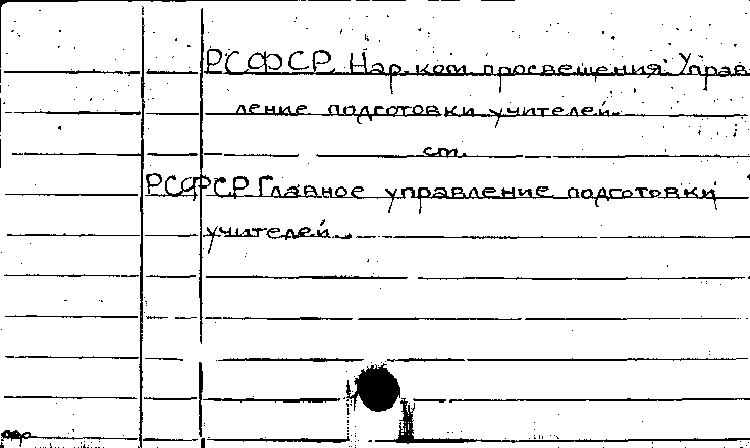 РСФСР. Нар. ком. просвещения. Управ
ление подготовки учителей.
ст.
РСФСР. Главное управление подготовки
учителей.